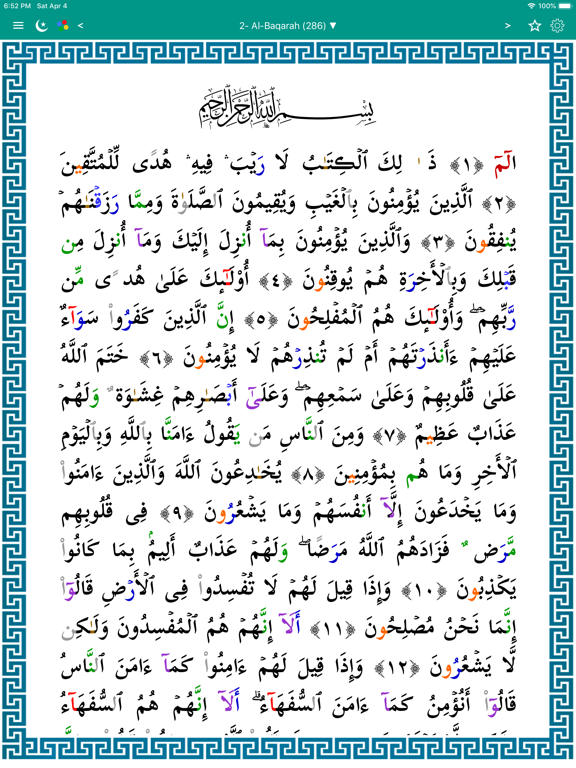 6:52 PM Sat Apr 4 100%
< 2- Al-Baqarah (286) ▼ >
بِسْمِ ٱللَّهِ ٱلرَّحْمَٰنِ ٱلرَّحِيمِ
الٓمٓ ﴿١﴾ ذَٰلِكَ ٱلْكِتَـٰبُ لَا رَيْبَ ۛ فِيهِ ۛ هُدًى لِّلْمُتَّقِينَ
﴿٢﴾ ٱلَّذِينَ يُؤْمِنُونَ بِٱلْغَيْبِ وَيُقِيمُونَ ٱلصَّلَوٰةَ وَمِمَّا رَزَقْنَـٰهُمْ
يُنفِقُونَ ﴿٣﴾ وَٱلَّذِينَ يُؤْمِنُونَ بِمَآ أُنزِلَ إِلَيْكَ وَمَآ أُنزِلَ مِن
قَبْلِكَ وَبِٱلْأَخِرَةِ هُمْ يُوقِنُونَ ﴿٤﴾ أُوْلَـٰٓئِكَ عَلَىٰ هُدًى مِّن
رَّبِّهِمْ ۖ وَأُوْلَـٰٓئِكَ هُمُ ٱلْمُفْلِحُونَ ﴿٥﴾ إِنَّ ٱلَّذِينَ كَفَرُوا۟ سَوَآءٌ
عَلَيْهِمْ ءَأَنذَرْتَهُمْ أَمْ لَمْ تُنذِرْهُمْ لَا يُؤْمِنُونَ ﴿٦﴾ خَتَمَ ٱللَّهُ
عَلَىٰ قُلُوبِهِمْ وَعَلَىٰ سَمْعِهِمْ ۖ وَعَلَىٰٓ أَبْصَـٰرِهِمْ غِشَـٰوَةٌ وَلَهُمْ
عَذَابٌ عَظِيمٌ ﴿٧﴾ وَمِنَ ٱلنَّاسِ مَن يَقُولُ ءَامَنَّا بِٱللَّهِ وَبِٱلْيَوْمِ
ٱلْأَخِرِ وَمَا هُم بِمُؤْمِنِينَ ﴿٨﴾ يُخَـٰدِعُونَ ٱللَّهَ وَٱلَّذِينَ ءَامَنُوا۟
وَمَا يَخْدَعُونَ إِلَّآ أَنفُسَهُمْ وَمَا يَشْعُرُونَ ﴿٩﴾ فِى قُلُوبِهِم
مَّرَضٌ فَزَادَهُمُ ٱللَّهُ مَرَضًا ۖ وَلَهُمْ عَذَابٌ أَلِيمٌۢ بِمَا كَانُوا۟
يَكْذِبُونَ ﴿١٠﴾ وَإِذَا قِيلَ لَهُمْ لَا تُفْسِدُوا۟ فِى ٱلْأَرْضِ قَالُوٓا۟
إِنَّمَا نَحْنُ مُصْلِحُونَ ﴿١١﴾ أَلَآ إِنَّهُمْ هُمُ ٱلْمُفْسِدُونَ وَلَـٰكِن
لَّا يَشْعُرُونَ ﴿١٢﴾ وَإِذَا قِيلَ لَهُمْ ءَامِنُوا۟ كَمَآ ءَامَنَ ٱلنَّاسُ
قَالُوٓا۟ أَنُؤْمِنُ كَمَآ ءَامَنَ ٱلسُّفَهَآءُ ۗ أَلَآ إِنَّهُمْ هُمُ ٱلسُّفَهَآءُ